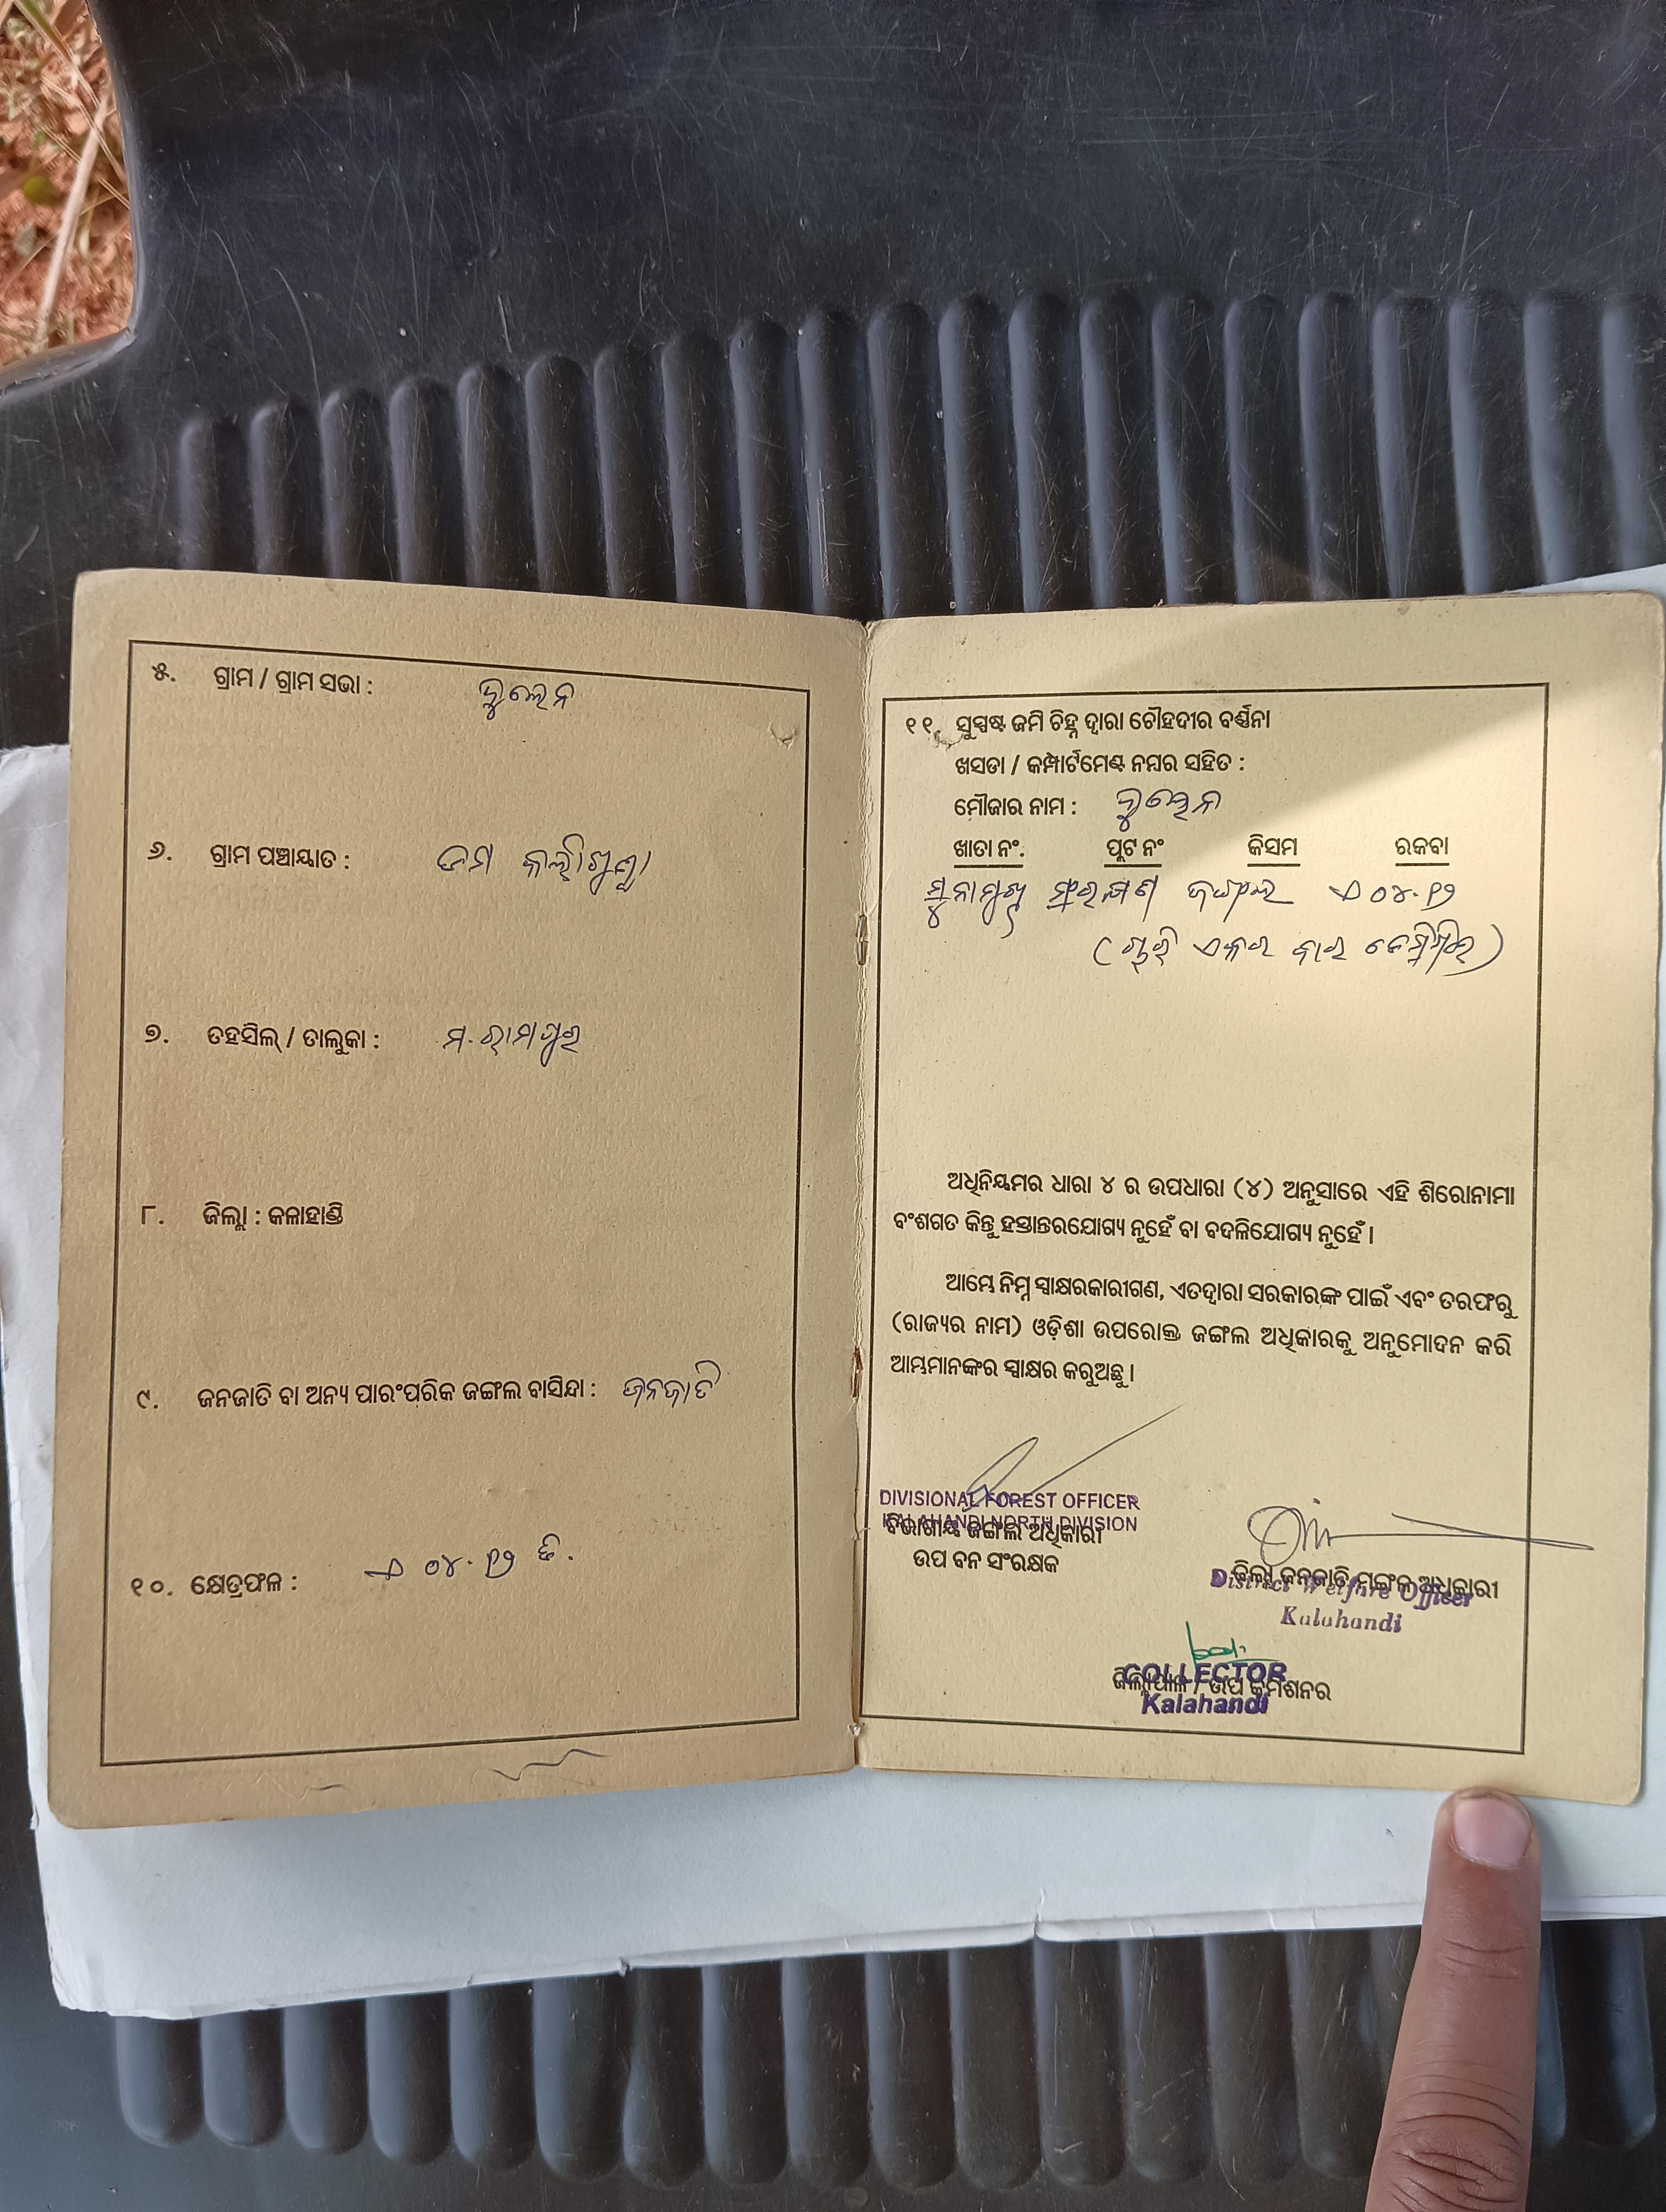 ୫. ଗ୍ରାମ / ଗ୍ରାମ ସଭା :
୬. ଗ୍ରାମ ପଞ୍ଚାୟାତ :
୭. ତହସିଲ୍ / ତାଲୁକା : ମ. ରାମପୁର
୮. ଜିଲ୍ଲା : କଳାହାଣ୍ଡି
୯. ଜନଜାତି ବା ଅନ୍ୟ ପାରଂପରିକ ଜଙ୍ଗଲ ବାସିନ୍ଦା : ଜନଜାତି
୧୦. କ୍ଷେତ୍ରଫଳ : ୦୪.୧୨ ଡି.
୧୧. ସୁସ୍ପଷ୍ଟ ଜମି ଚିହ୍ନ ଦ୍ୱାରା ଚୌହଦୀର ବର୍ଣ୍ଣନା
ଖସଡା / କମ୍ପାର୍ଟମେଣ୍ଟ ନମ୍ବର ସହିତ :
ମୌଜାର ନାମ :
ଖାତା ନଂ. ପ୍ଲଟ ନଂ କିସମ ରକବା
ସଂରକ୍ଷଣ ଜଙ୍ଗଲ ୦୪.୧୨
( ଚାରି ଏକର ବାର ଡେସିମିଲ )
ଅଧିନିୟମର ଧାରା ୪ ର ଉପଧାରା (୪) ଅନୁସାରେ ଏହି ଶିରୋନାମା
ବଂଶଗତ କିନ୍ତୁ ହସ୍ତାନ୍ତରଯୋଗ୍ୟ ନୁହେଁ ବା ବଦଳିଯୋଗ୍ୟ ନୁହେଁ ।
ଆମ୍ଭେ ନିମ୍ନ ସ୍ୱାକ୍ଷରକାରୀଗଣ, ଏତଦ୍ୱାରା ସରକାରଙ୍କ ପାଇଁ ଏବଂ ତରଫରୁ
(ରାଜ୍ୟର ନାମ) ଓଡ଼ିଶା ଉପରୋକ୍ତ ଜଙ୍ଗଲ ଅଧିକାରକୁ ଅନୁମୋଦନ କରି
ଆମ୍ଭମାନଙ୍କର ସ୍ୱାକ୍ଷର କରୁଅଛୁ ।
DIVISIONAL FOREST OFFICER
KALAHANDI NORTH DIVISION
ବିଭାଗୀୟ ଜଙ୍ଗଲ ଅଧିକାରୀ
ଉପ ବନ ସଂରକ୍ଷକ
ଜିଲ୍ଲା ଜନଜାତି ମଙ୍ଗଳ ଅଧିକାରୀ
District Welfare Officer
Kalahandi
COLLECTOR
ଜିଲ୍ଲାପାଳ / ଉପ କମିଶନର
Kalahandi